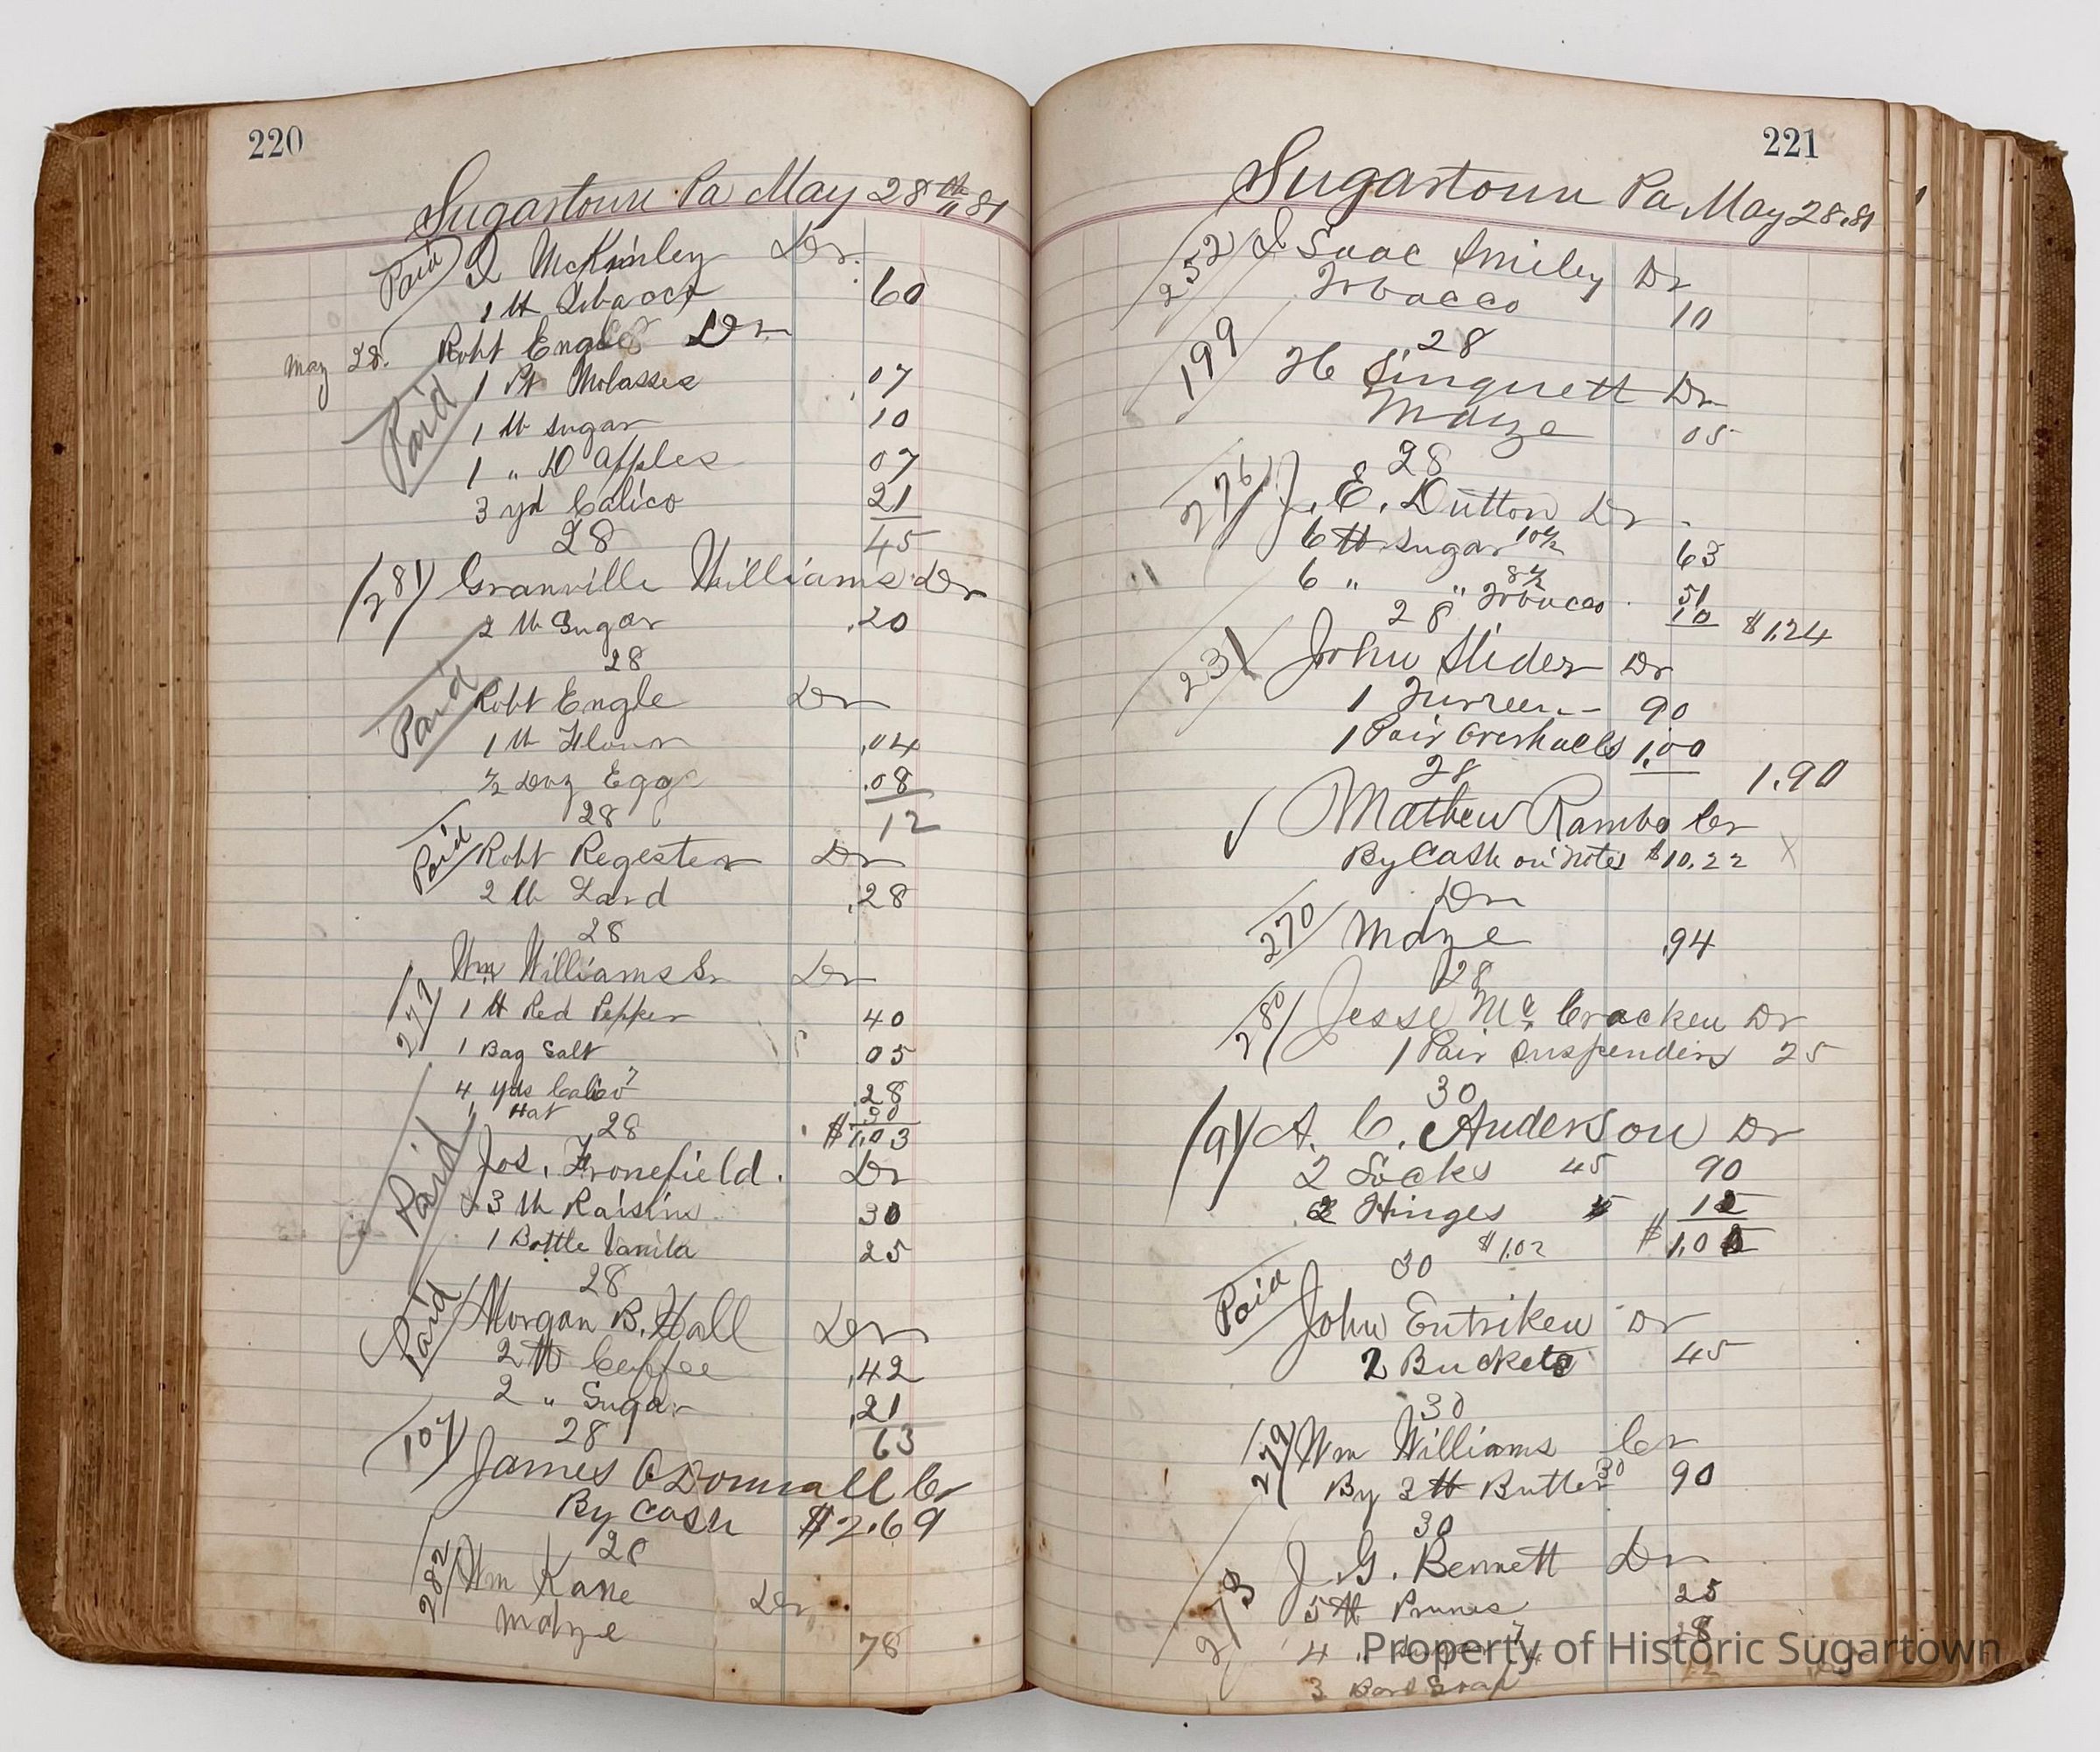 220
Sugartown Pa May 28th " 81
Paid
McKinley Dr.
1 lb Tobacco 60
May 28. Robt Engle Dr
Paid
1 Pt Molasses .07
1 lb Sugar 10
1 " D Apples 07
3 yd Calico 21
28 45
281 Granville Williams Dr
2 lb Sugar .20
28
Paid Robt Engle Dr
1 lb Flour .04
½ Doz Eggs .08
28 12
Paid Robt Regester Dr
2 lb Lard .28
28
Wm Williams Sr Dr
279 1 lb Red Pepper 40
1 Bag Salt 05
4 yds Calico 7 .28
1 Hat 30
28 $1.03
Paid Jos. Fronefield. Dr
3 lb Raisins 30
1 Bottle Vanila 25
28
Paid Morgan B. Hall Dr
2 lb Coffee .42
2 " Sugar .21
28 63
107 James O Donnall Cr
By Cash $2.69
28
282 Wm Kane Dr
Mdze 78
221
Sugartown Pa May 28.81
252 Isaac Smiley Dr
Tobacco 10
28
199 H Sinquett Dr
Mdze 05
28
276 J. E. Dutton Dr.
6 lb Sugar 10½ 63
6 " " 8½ 51
Tobacco 10 $1,24
28
231 John Slider Dr
1 Turreen - 90
1 Pair Overhalls 1,00
28 1.90
Mathew Rambo Cr
By Cash on Notes $10.22 X
Dr
270 Mdze .94
28
280 Jesse Mc Cracken Dr
1 Pair Suspenders 25
30
191 A. C. Anderson Dr
2 Socks 45 90
2 Hinges 12
$1,02 $1,02
30
Paid John Entriken Dr
2 Buckets 45
30
279 Wm Williams Cr
By 3 lb Butter 30 90
30
273 J. G. Bennett Dr
5 lb Prunes 25
4 " 7 28
3 Bars Soap
Property of Historic Sugartown